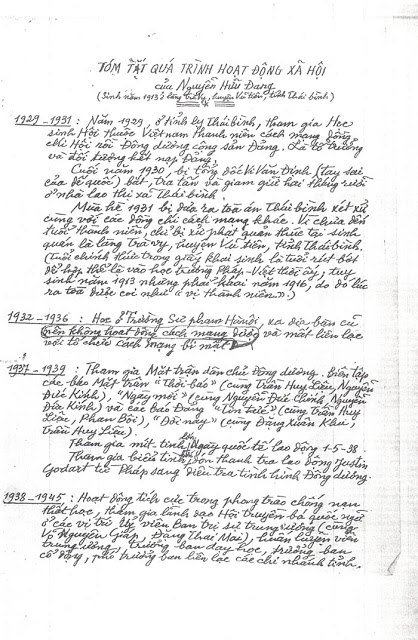 TÓM TẮT QUÁ TRÌNH HOẠT ĐỘNG XÃ HỘI
của Nguyễn Hữu Đang
(Sinh năm 1913 ở làng Trà Vy, huyện Vũ tiên, tỉnh Thái bình)
1929-1931 : Năm 1929, ở tỉnh lỵ Thái bình, tham gia Học
sinh Hội thuộc Việt nam thanh niên cách mạng đồng
chí Hội rồi Đông dương cộng sản Đảng. Là tổ trưởng
và đối tượng kết nạp Đảng.
Cuối năm 1930, bị tổng đốc Vi Văn Định (tay sai
của đế quốc) bắt tra tấn và giam giữ hai tháng rưỡi
ở nhà lao thị xã Thái bình.
Mùa hè 1931 bị đưa ra toà án Thái bình xét xử
cùng với các đồng chí cách mạng khác. Vì chưa đến
tuổi thành niên, chỉ bị xử phạt quản thúc tại sinh
quán là làng trà vy, huyện Vũ tiên, tỉnh Thái bình.
(Tuổi chính thức trong giấy khai sinh là tuổi rút bớt
để hợp thể lệ vào học trường Pháp-Việt thời ấy, tuy
sinh năm 1913 nhưng phải khai năm 1916, do đó lúc
ra toà được coi như "vị thành niên".)
1932-1936 : Học ở Trường Sư phạm Hà nội, xa địa bàn cũ
nên không hoạt động cách mạng được và mất liên lạc
với tổ chức cách mạng bí mật
1937-1939 : Tham gia Mặt trận dân chủ Đông dương. Biên tập
các báo Mặt trận "Thời báo" (cùng Trần Huy Liệu, Nguyễn
Đức Kính), "Ngày mới" (cùng Nguyễn Đức Chính, Nguyễn
Đức Kính) và các báo Đảng "Tin tức" (cùng trần Huy
Liệu, Phan Bôi), "Đời nay" (cùng Đặng Xuân Khu,
trần Huy Liệu)
Tham gia mít tinh Ngày quốc tế lao động 1-5-38.
Tham gia biểu tình đón thanh tra lao động Justin
Godart từ Pháp sang điều tra tình hình Đông dương.
1938-1945 : Hoạt động tích cực trong phong trào chống nạn
thất học, tham gia lãnh đạo Hội truyền bá quốc ngữ
ở các vị trí uỷ viên Ban trị sự trung ương (cùng
Võ Nguyên Giáp, Đặng Thai Mai), huấn luyện viên
trung ương, trưởng ban dạy học, trưởng ban
cổ động, phó trưởng ban liên lạc các chi nhánh tỉnh.